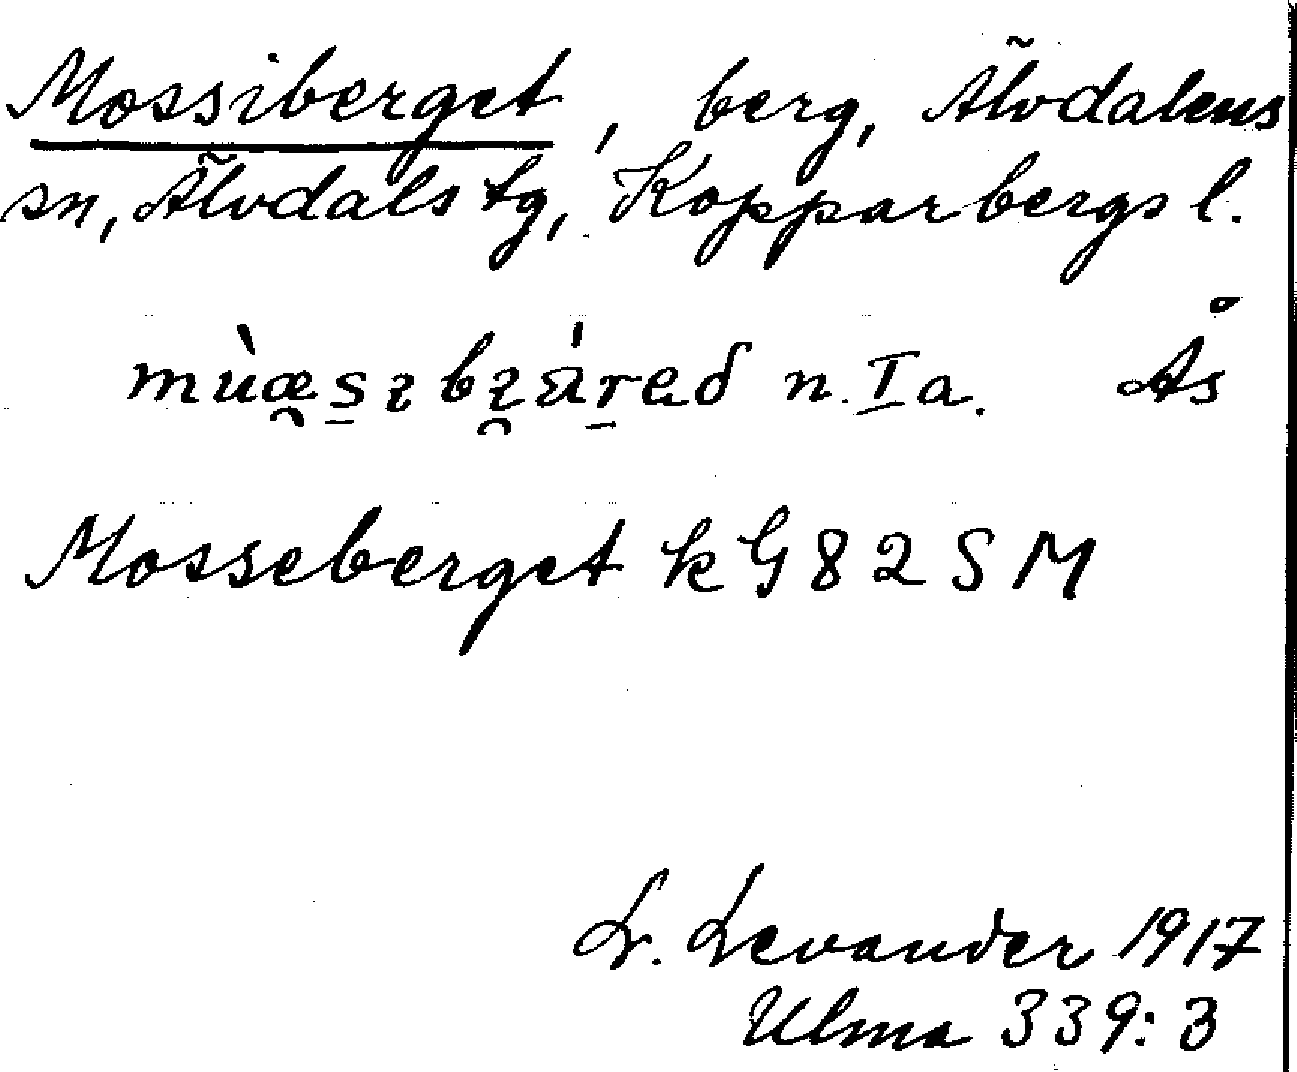 Mossiberget, berg, Älvdalens
sn, Älvdals tg, Kopparbergs l.
n. Ia. Ås
Mosseberget kG 82 SM
L. Levander 1917
Ulma 339:3